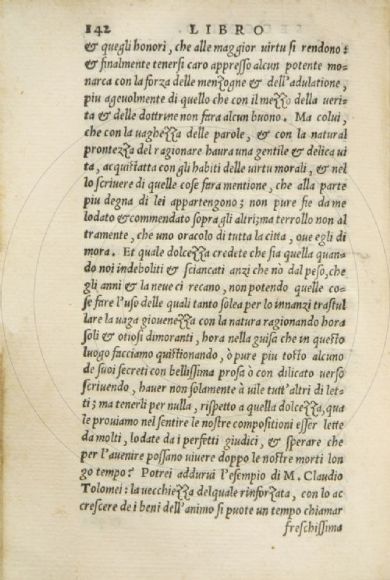 142 LIBRO
& quegli honori, che alle maggior virtu si rendono :
& finalmente tenersi caro appresso alcun potente mo-
narca con la forza delle menzogne & dell'adulatione,
piu ageuolmente di quello che con il mezzo della ueri-
ta & delle dottrine non fara alcun buono. Ma colui,
che con la uaghezza delle parole, & con la natural
prontezza del ragionare haura una gentile & delica ui
ta, acquistatta con gli habiti delle uirtu morali, & nel
lo scriuere di quelle cose fara mentione, che alla parte
piu degna di lei appartengono; non pure fie da me
lodato & commendato sopra gli altri; ma terrollo non al
tramente, che uno oracolo di tutta la citta, oue egli di
mora. Et quale dolcezza credete che sia quella quan-
do noi indeboliti & sciancati anzi che nò dal peso, che
gli anni & la neue ci recano, non potendo quelle co-
se fare l'uso delle quali tanto solea per lo innanzi trastul
lare la uaga giouenezza con la natura ragionando hora
soli & otiosi dimoranti, hora nella guisa che in questo
luogo facciamo quistionando, ò pure piu tosto alcuno
de suoi secreti con bellissima prosa ò con dilicato uerso
scriuendo, hauer non solamente à uile tutt'altri di let-
ti; ma tenerli per nulla, rispetto a quella dolcezza, qua
le prouiamo nel sentire le nostre compositioni esser lette
da molti, lodate da i perfetti giudici, & sperare che
per l'auenire possano uiuere doppo le nostre morti lon
go tempo? Potrei adduruì l'esempio di M. Claudio
Tolomei : la uecchiezza del quale rinforzata, con lo ac
crescere de i beni dell'animo si puote un tempo chiamar
freschissima